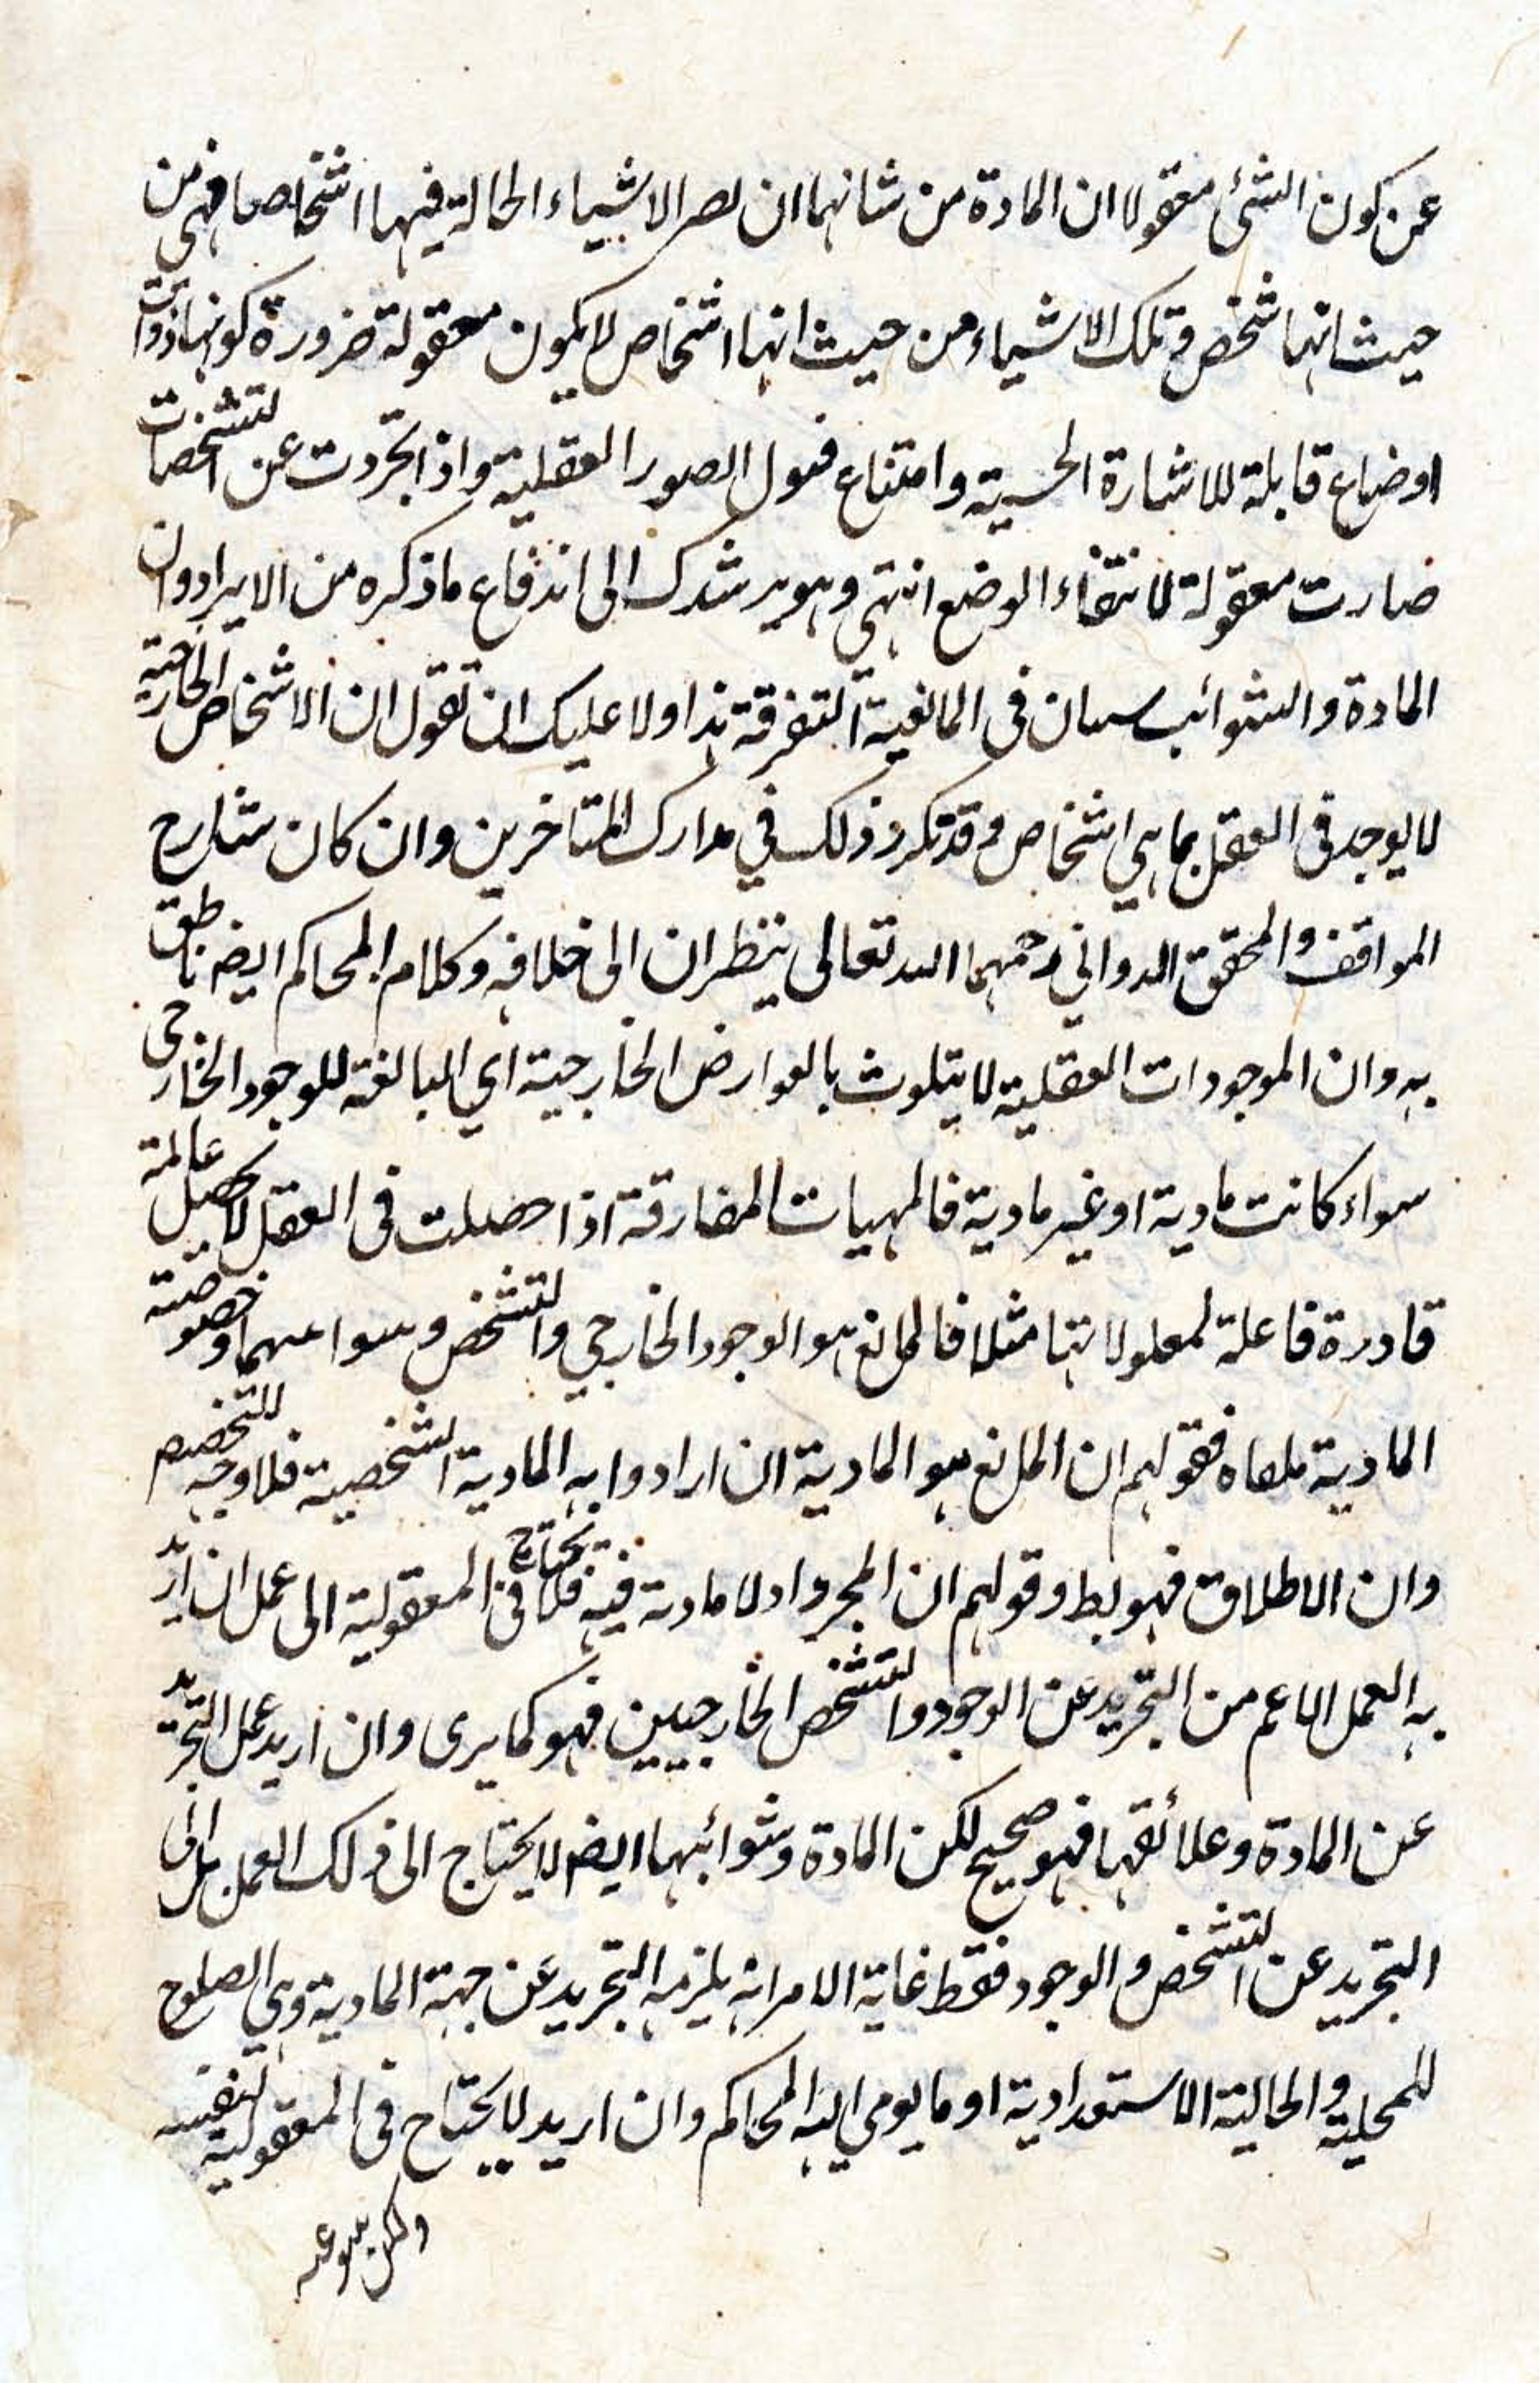 عن كون الشئ معقولا ان المادة من شانها ان لصر الاشياء الحالة فيها اشخاصا فهي من
حيث انها شخص وتلك الاشياء من حيث انها اشخاص لا يكون معقولة ضرورة كونها ذوات
اوضاع قابلة للاشارة الحسية وامتناع قبول الصور العقلية واذا تجردت عن التشخصات
صارت معقولة لانتفاء الوضع انتهى وهو يرشدك الى اندفاع ما ذكره من الايراد وان
المادة والشوائب سيان في المانعية التفرقة هذا ولا عليك ان تقول ان الاشخاص الخارجية
لا يوجد في العقل بما هي اشخاص وقد تكرر ذلك في مدارك المتاخرين وان كان شارح
المواقف والمحقق الدواني رحمهما الله تعالى ينظران الى خلافه وكلام المحاكم ايضا ناطق
به وان الموجودات العقلية لا يتلوث بالعوارض الخارجية اي البالغة للوجود الخارجي
سواء كانت مادية او غير مادية فالمهيات المفارقة اذا حصلت في العقل لا تحصل عالمة
قادرة فاعلة لمعلولاتها مثلا فالمانع هو الوجود الخارجي والتشخص وسواء وخصوصية
المادية ملغاه فقولهم ان المانع هو المادية ان ارادوا به المادية الشخصية فلا وجه للتخصيص
وان الاطلاق فهو بط وقولهم ان المجرد اد لا مادية فيه فلا يحتاج في المعقولية الى عمل ان اريد
به العمل الاعم من التجريد عن الوجود والتشخص الخارجيين فهو كما يرى وان اريد عمل التجريد
عن المادة وعلائقها فهو صحيح لكن المادة وشوائبها ايضا لا يحتاج الى ذلك العمل بل الى
التجريد عن التشخص والوجود فقط غاية الامر انه يلزمه التجريد عن جهة المادية وهي الصلوح
للمحلية والحالية الاستعدادية او ما يومي اليه المحاكم وان اريد لا يحتاج في المعقولية لنفسه
ولكن